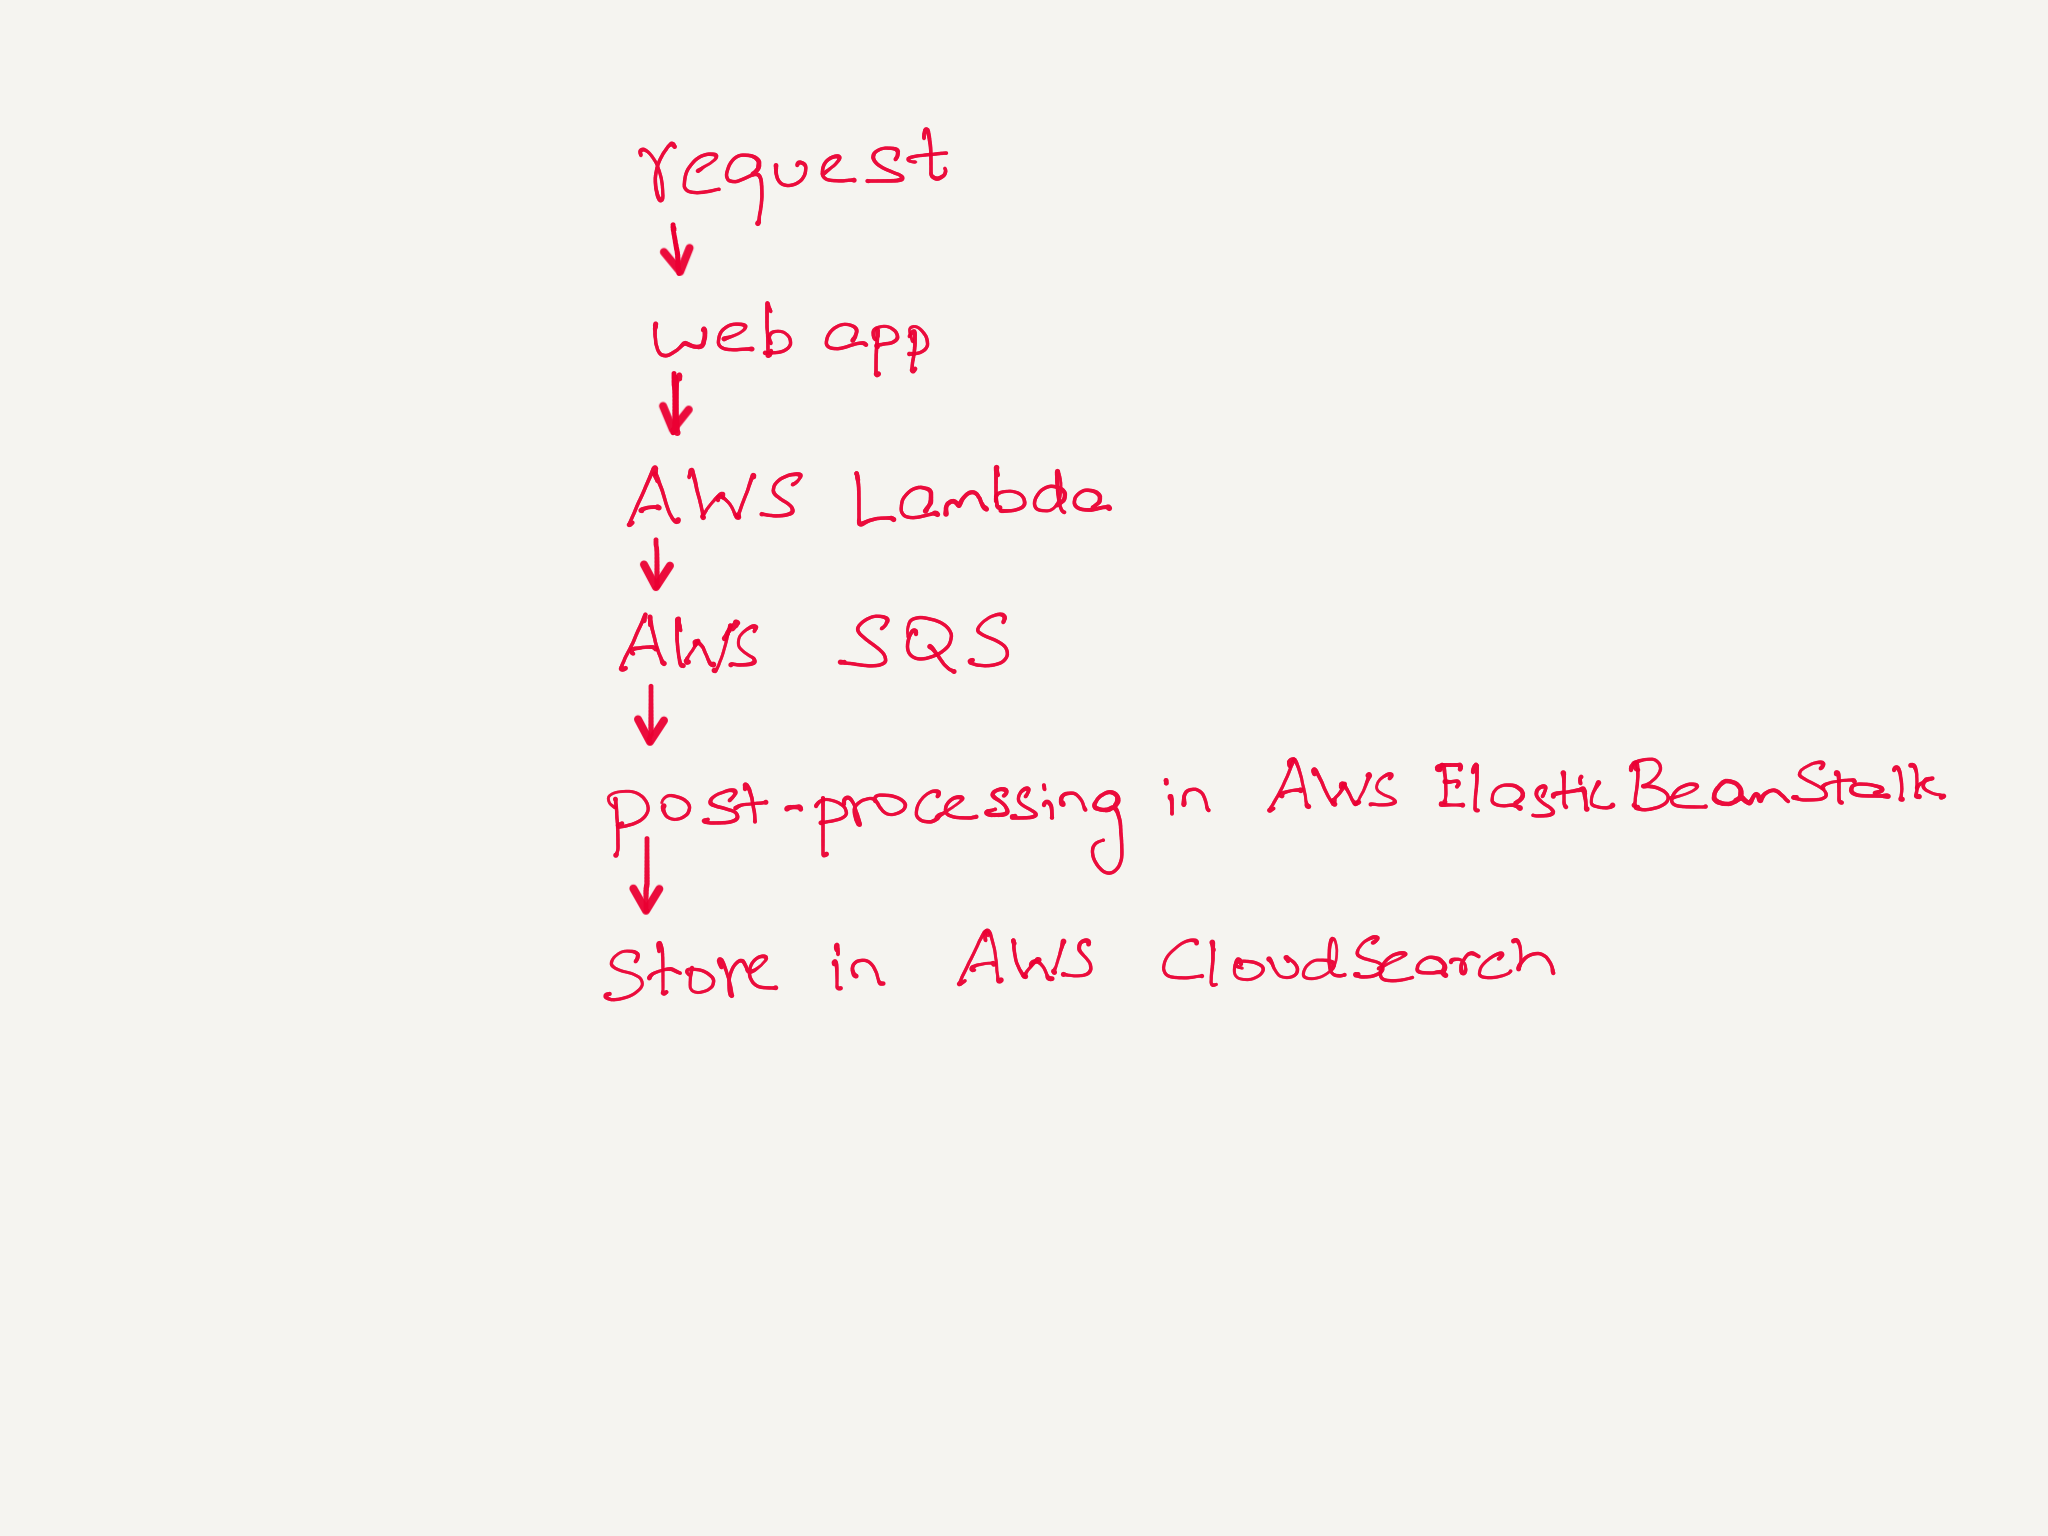 request
web app
AWS Lambda
AWS SQS
post-processing in AWS ElasticBeanStalk
Store in AWS CloudSearch